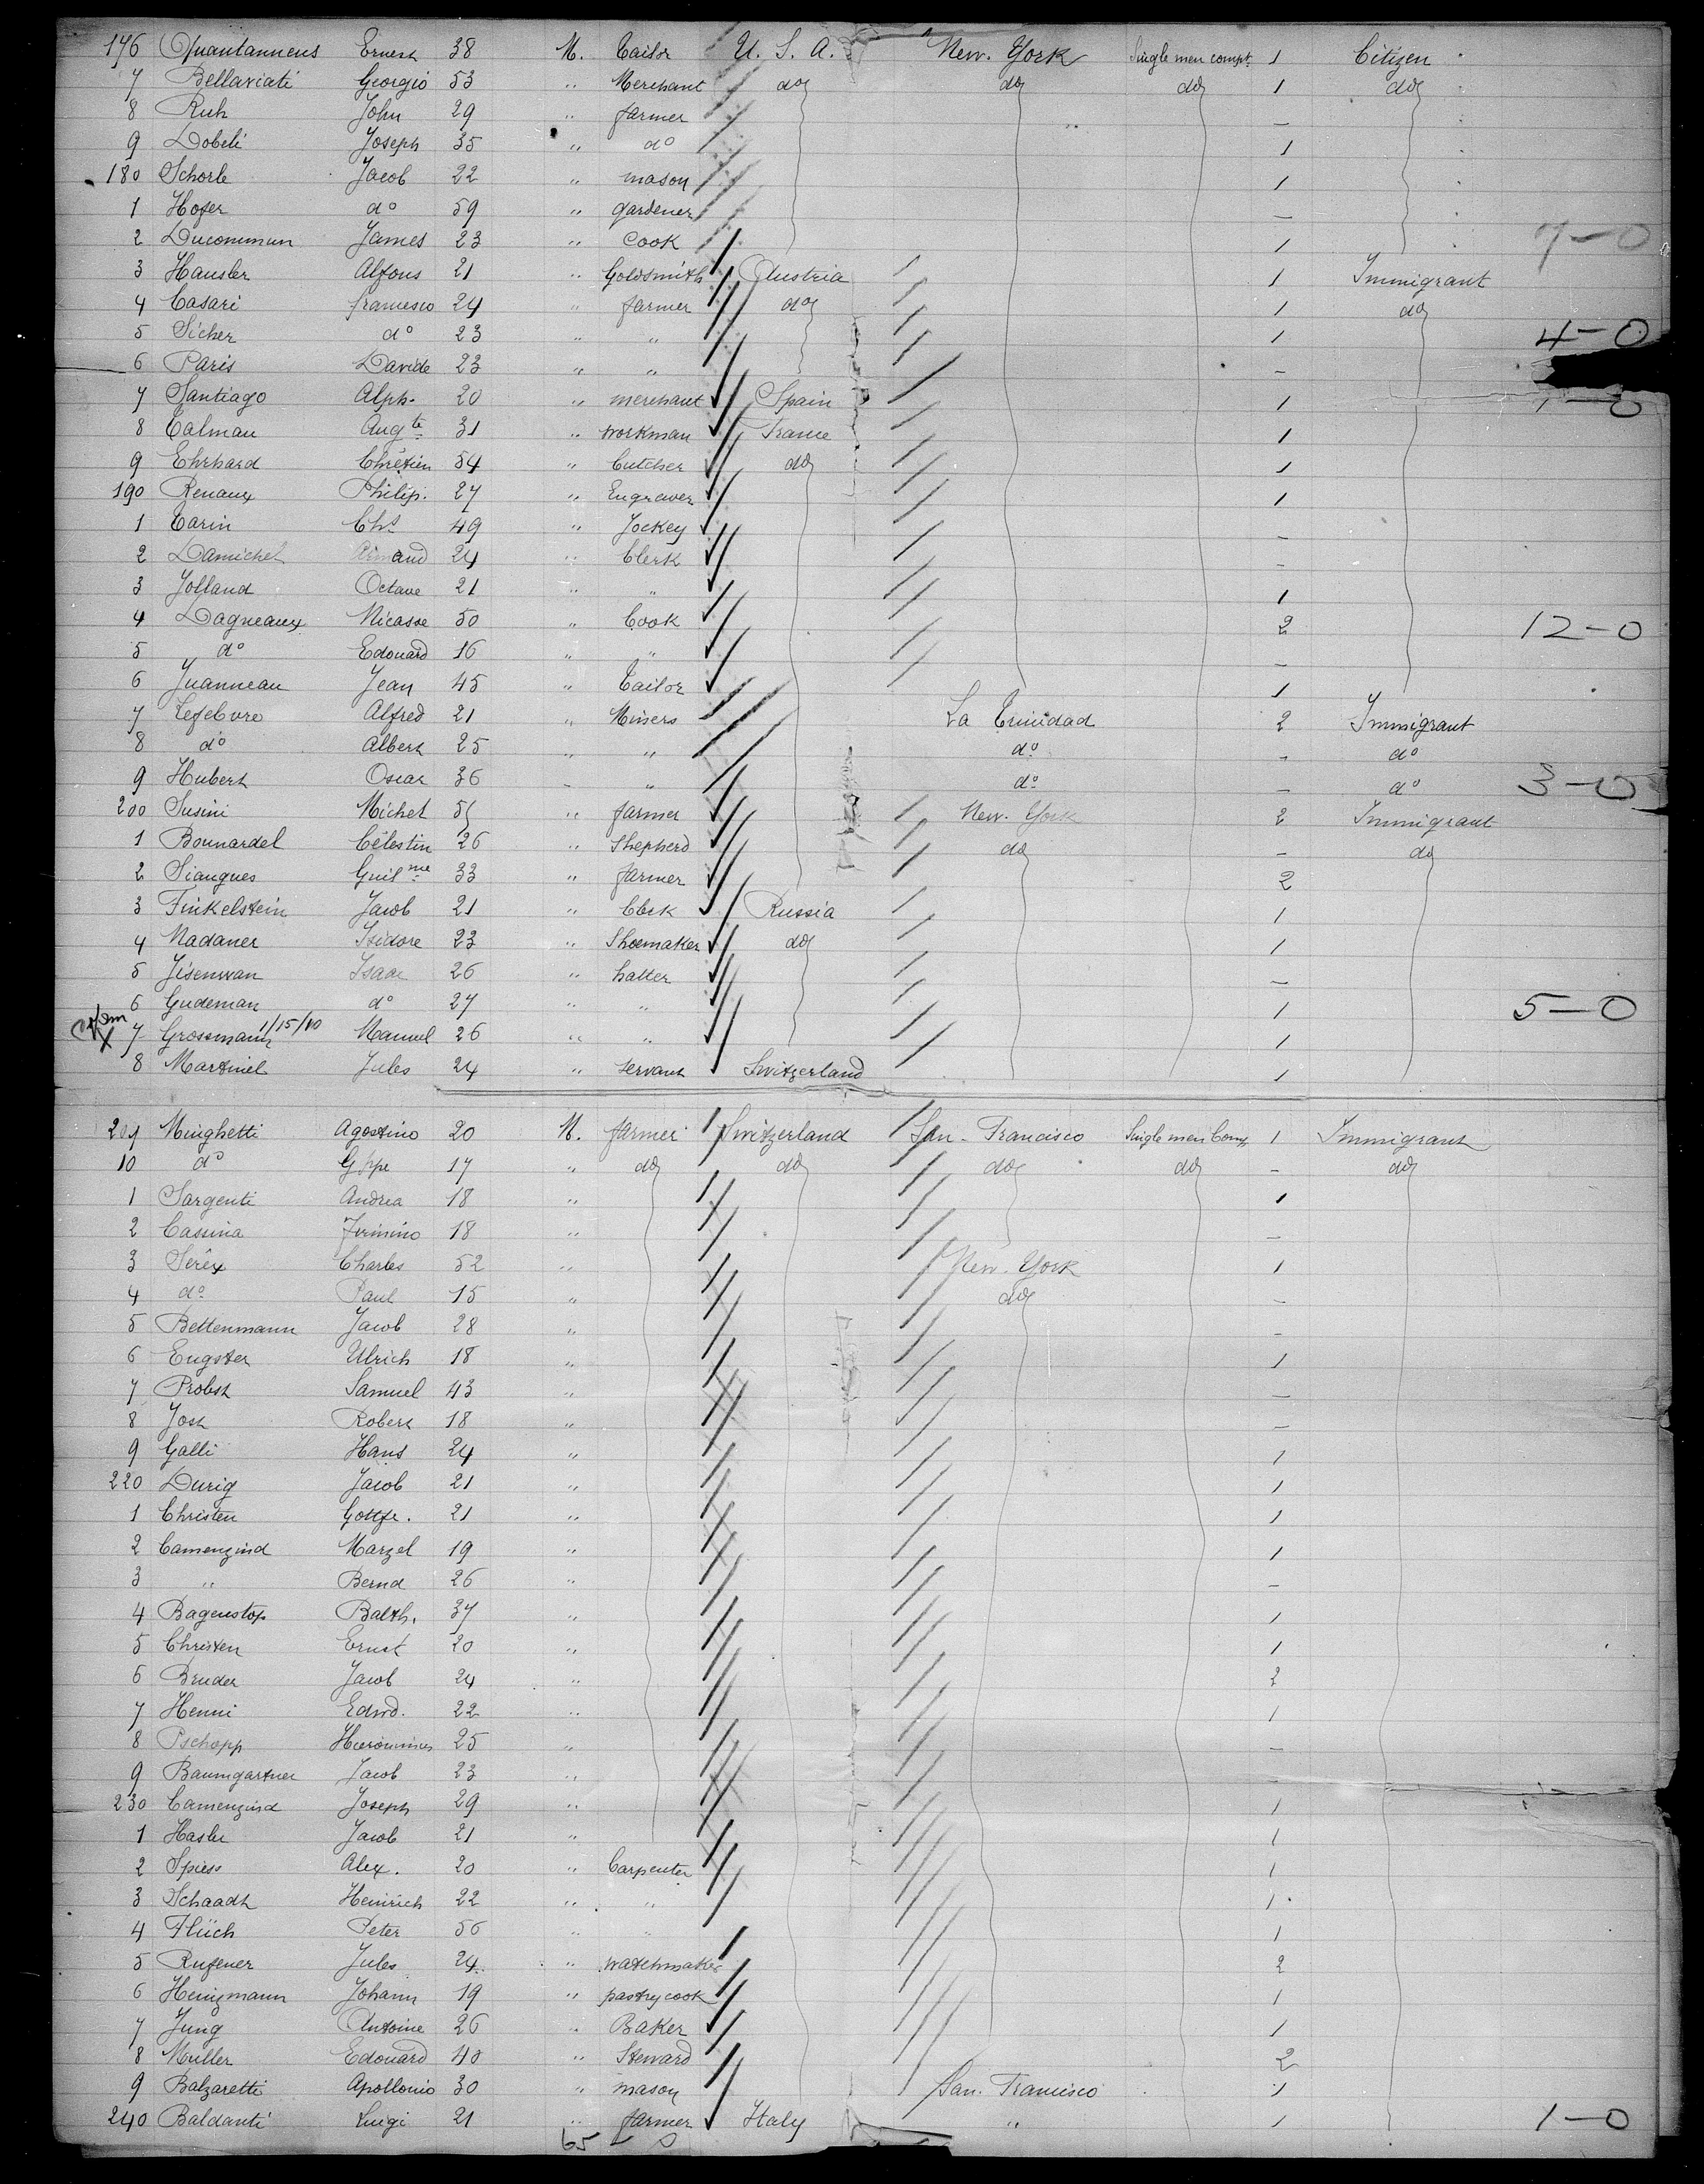 176 Quantannens Ernest 38 M. Tailor U. S. A. New. York Single men compt. 1 Citizen
7 Bellaviati Georgio 53 " Merchant do do do 1 do
8 Ruh John 29 " farmer —
9 Dobeli Joseph 35 " do 1
180 Schorle Jacob 22 " mason 1
1 Hofer do 59 " gardener —
2 Ducommun James 23 " Cook 1 7-0
3 Hausler Alfons 21 " Goldsmith Austria 1 Immigrant
4 Casari francesco 24 " farmer do 1 do
5 Sicher do 23 " " 1 4-0
6 Paris Davide 23 " " —
7 Santiago Alph. 20 " merchant Spain 1 1-0
8 Calman Augte 31 " workman France 1
9 Ehrhard Chrétien 54 " butcher do 1
190 Renaux Philip. 27 " Engraver 1
1 Carin Chs 49 " Jockey —
2 Damichel Armand 24 " Clerk —
3 Jolland Octave 21 " " 1
4 Dagneaux Nicasse 50 " Cook 2 12-0
5 do Edouard 16 " " —
6 Juanneau Jean 45 " Tailor 1
7 Lefebvre Alfred 21 " Miners La Trinidad 2 Immigrant
8 do Albert 25 " " do - do
9 Hubert Oscar 36 - " do — do 3-0
200 Susini Michel " farmer New. York 2 Immigrant
1 Bonnardel Célestin 26 " Shepherd do — do
2 Siaugues Guilme 33 " farmer 2
3 Finkelstein Jacob 21 " Clerk Russia 1
4 Nadaner Isidore 23 " Shoemaker do 1
5 Jisenwan Isaac 26 " hatter —
6 Gudeman do 27 " " 1 5-0
X 7 Grossmann 1/15/10 Manuel 26 " " 1
8 Martinel Jules 24 " servant Switzerland 1
209 Minghetti Agostino 20 M. farmer Switzerland San. Francisco Single men Comp. 1 Immigrant
10 do Gppe 17 " do do do do - do
1 Sargenti Andrea 18 " 1
2 Casina Firmino 18 " —
3 Serex Charles 52 " New. York 1
4 do Paul 15 " do —
5 Bettenmann Jacob 28 " -
6 Engster Ulrich 18 " 1
7 Probst Samuel 43 " —
8 Jost Robert 18 " —
9 Galli Hans 24 " 1
220 Durig Jacob 21 " 1
1 Christen Gottfr. 21 " 1
2 Camenzind Marzel 19 " 1
3 " Bernd 26 " -
4 Bagenstop Balth. 37 " 1
5 Christen Ernst 20 " 1
6 Bruder Jacob 24 " 2
7 Henni Edwd. 22 " 1
8 Pschopp Hieronimus 25 " —
9 Baumgartner Jacob 23 " -
230 Camenzind Joseph 29 " 1
1 Hasler Jacob 21 " 1
2 Spiess Alex. 20 " Carpenter 1
3 Schaadt Heinrich 22 " " 1
4 Flüch Peter 56 " " 1
5 Rufener Jules 24 " watchmaker 2
6 Heinzmann Johann 19 " pastrycook 1
7 Jung Antoine 26 " Baker 1
8 Muller Edouard 40 " Steward 2
9 Balzaretti Apollonio 30 " mason San. Francisco 1
240 Baldanti Luigi 21 " farmer Italy " 1 1-0
65